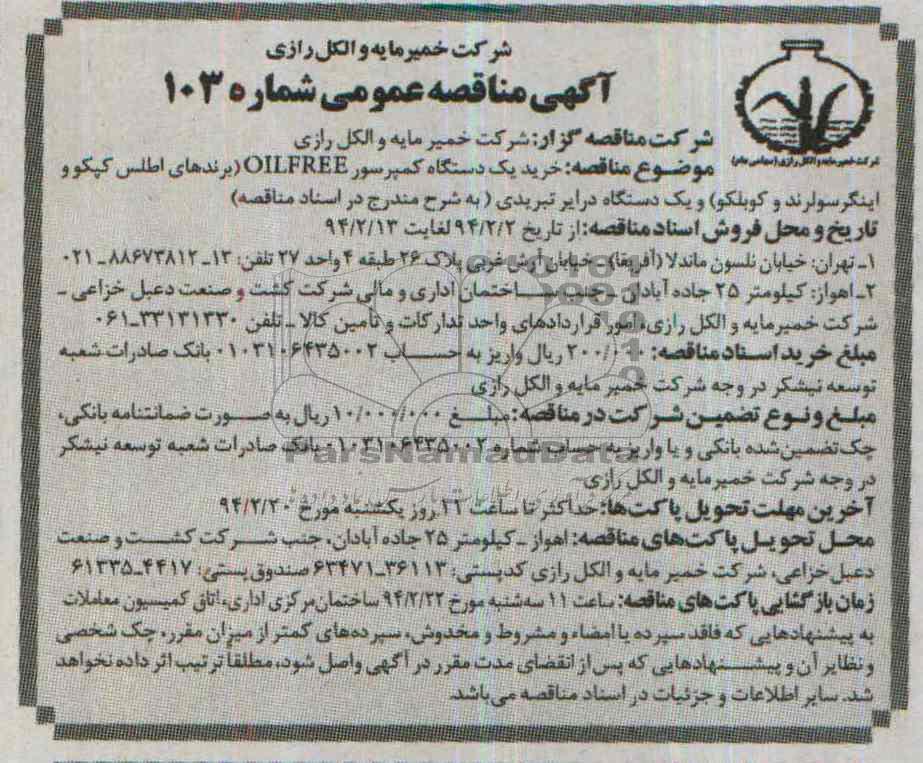 شرکت خمیرمایه و الکل رازی
آگهی مناقصه عمومی شماره ۱۰۳
شرکت خمیر مایه و الکل رازی (سهامی عام)
شرکت مناقصه گزار: شرکت خمیر مایه و الکل رازی
موضوع مناقصه: خرید یک دستگاه کمپرسور OILFREE (برندهای اطلس کپکو و
اینگرسولرند و کوبلکو) و یک دستگاه درایر تبریدی (به شرح مندرج در اسناد مناقصه)
تاریخ و محل فروش اسناد مناقصه: از تاریخ ۹۴/۲/۲ لغایت ۹۴/۲/۱۳
۱ـ تهران: خیابان نلسون ماندلا (آفریقا) ـ خیابان آرش غربی پلاک ۲۶ طبقه ۴ واحد ۲۷ تلفن: ۱۳ـ۸۸۶۷۳۸۱۲ـ۰۲۱
۲ـ اهواز: کیلومتر ۲۵ جاده آبادان ـ جنب ساختمان اداری و مالی شرکت کشت و صنعت دعبل خزاعی ـ
شرکت خمیرمایه و الکل رازی، امور قراردادهای واحد تدارکات و تأمین کالا ـ تلفن ۳۳۱۳۱۳۳۰ـ۰۶۱
مبلغ خرید اسناد مناقصه: ۲۰۰/۰۰۰ ریال واریز به حساب ۰۱۰۳۱۰۶۴۳۵۰۰۲ بانک صادرات شعبه
توسعه نیشکر در وجه شرکت خمیر مایه و الکل رازی
مبلغ و نوع تضمین شرکت در مناقصه: مبلغ ۱۰/۰۰۰/۰۰۰ ریال به صورت ضمانتنامه بانکی،
چک تضمین شده بانکی و یا واریز به حساب شماره ۰۱۰۳۱۰۶۴۳۵۰۰۲ بانک صادرات شعبه توسعه نیشکر
در وجه شرکت خمیرمایه و الکل رازی
آخرین مهلت تحویل پاکت‌ها: حداکثر تا ساعت روز یکشنبه مورخ ۹۴/۲/۲۰
محل تحویل پاکت‌های مناقصه: اهواز ـ کیلومتر ۲۵ جاده آبادان، جنب شرکت کشت و صنعت
دعبل خزاعی، شرکت خمیر مایه و الکل رازی کدپستی: ۳۶۱۱۳ـ۶۳۴۷۱ صندوق پستی: ۴۴۱۷ـ۶۱۳۳۵
زمان بازگشایی پاکت‌های مناقصه: ساعت ۱۱ سه‌شنبه مورخ ۹۴/۲/۲۲ ساختمان مرکزی اداری، اتاق کمیسیون معاملات
به پیشنهادهایی که فاقد سپرده یا امضاء و مشروط و مخدوش، سپرده‌های کمتر از میزان مقرر، چک شخصی
و نظایر آن و پیشنهادهایی که پس از انقضای مدت مقرر در آگهی واصل شود، مطلقاً ترتیب اثر داده نخواهد
شد. سایر اطلاعات و جزئیات در اسناد مناقصه می‌باشد.
ParsNamadData